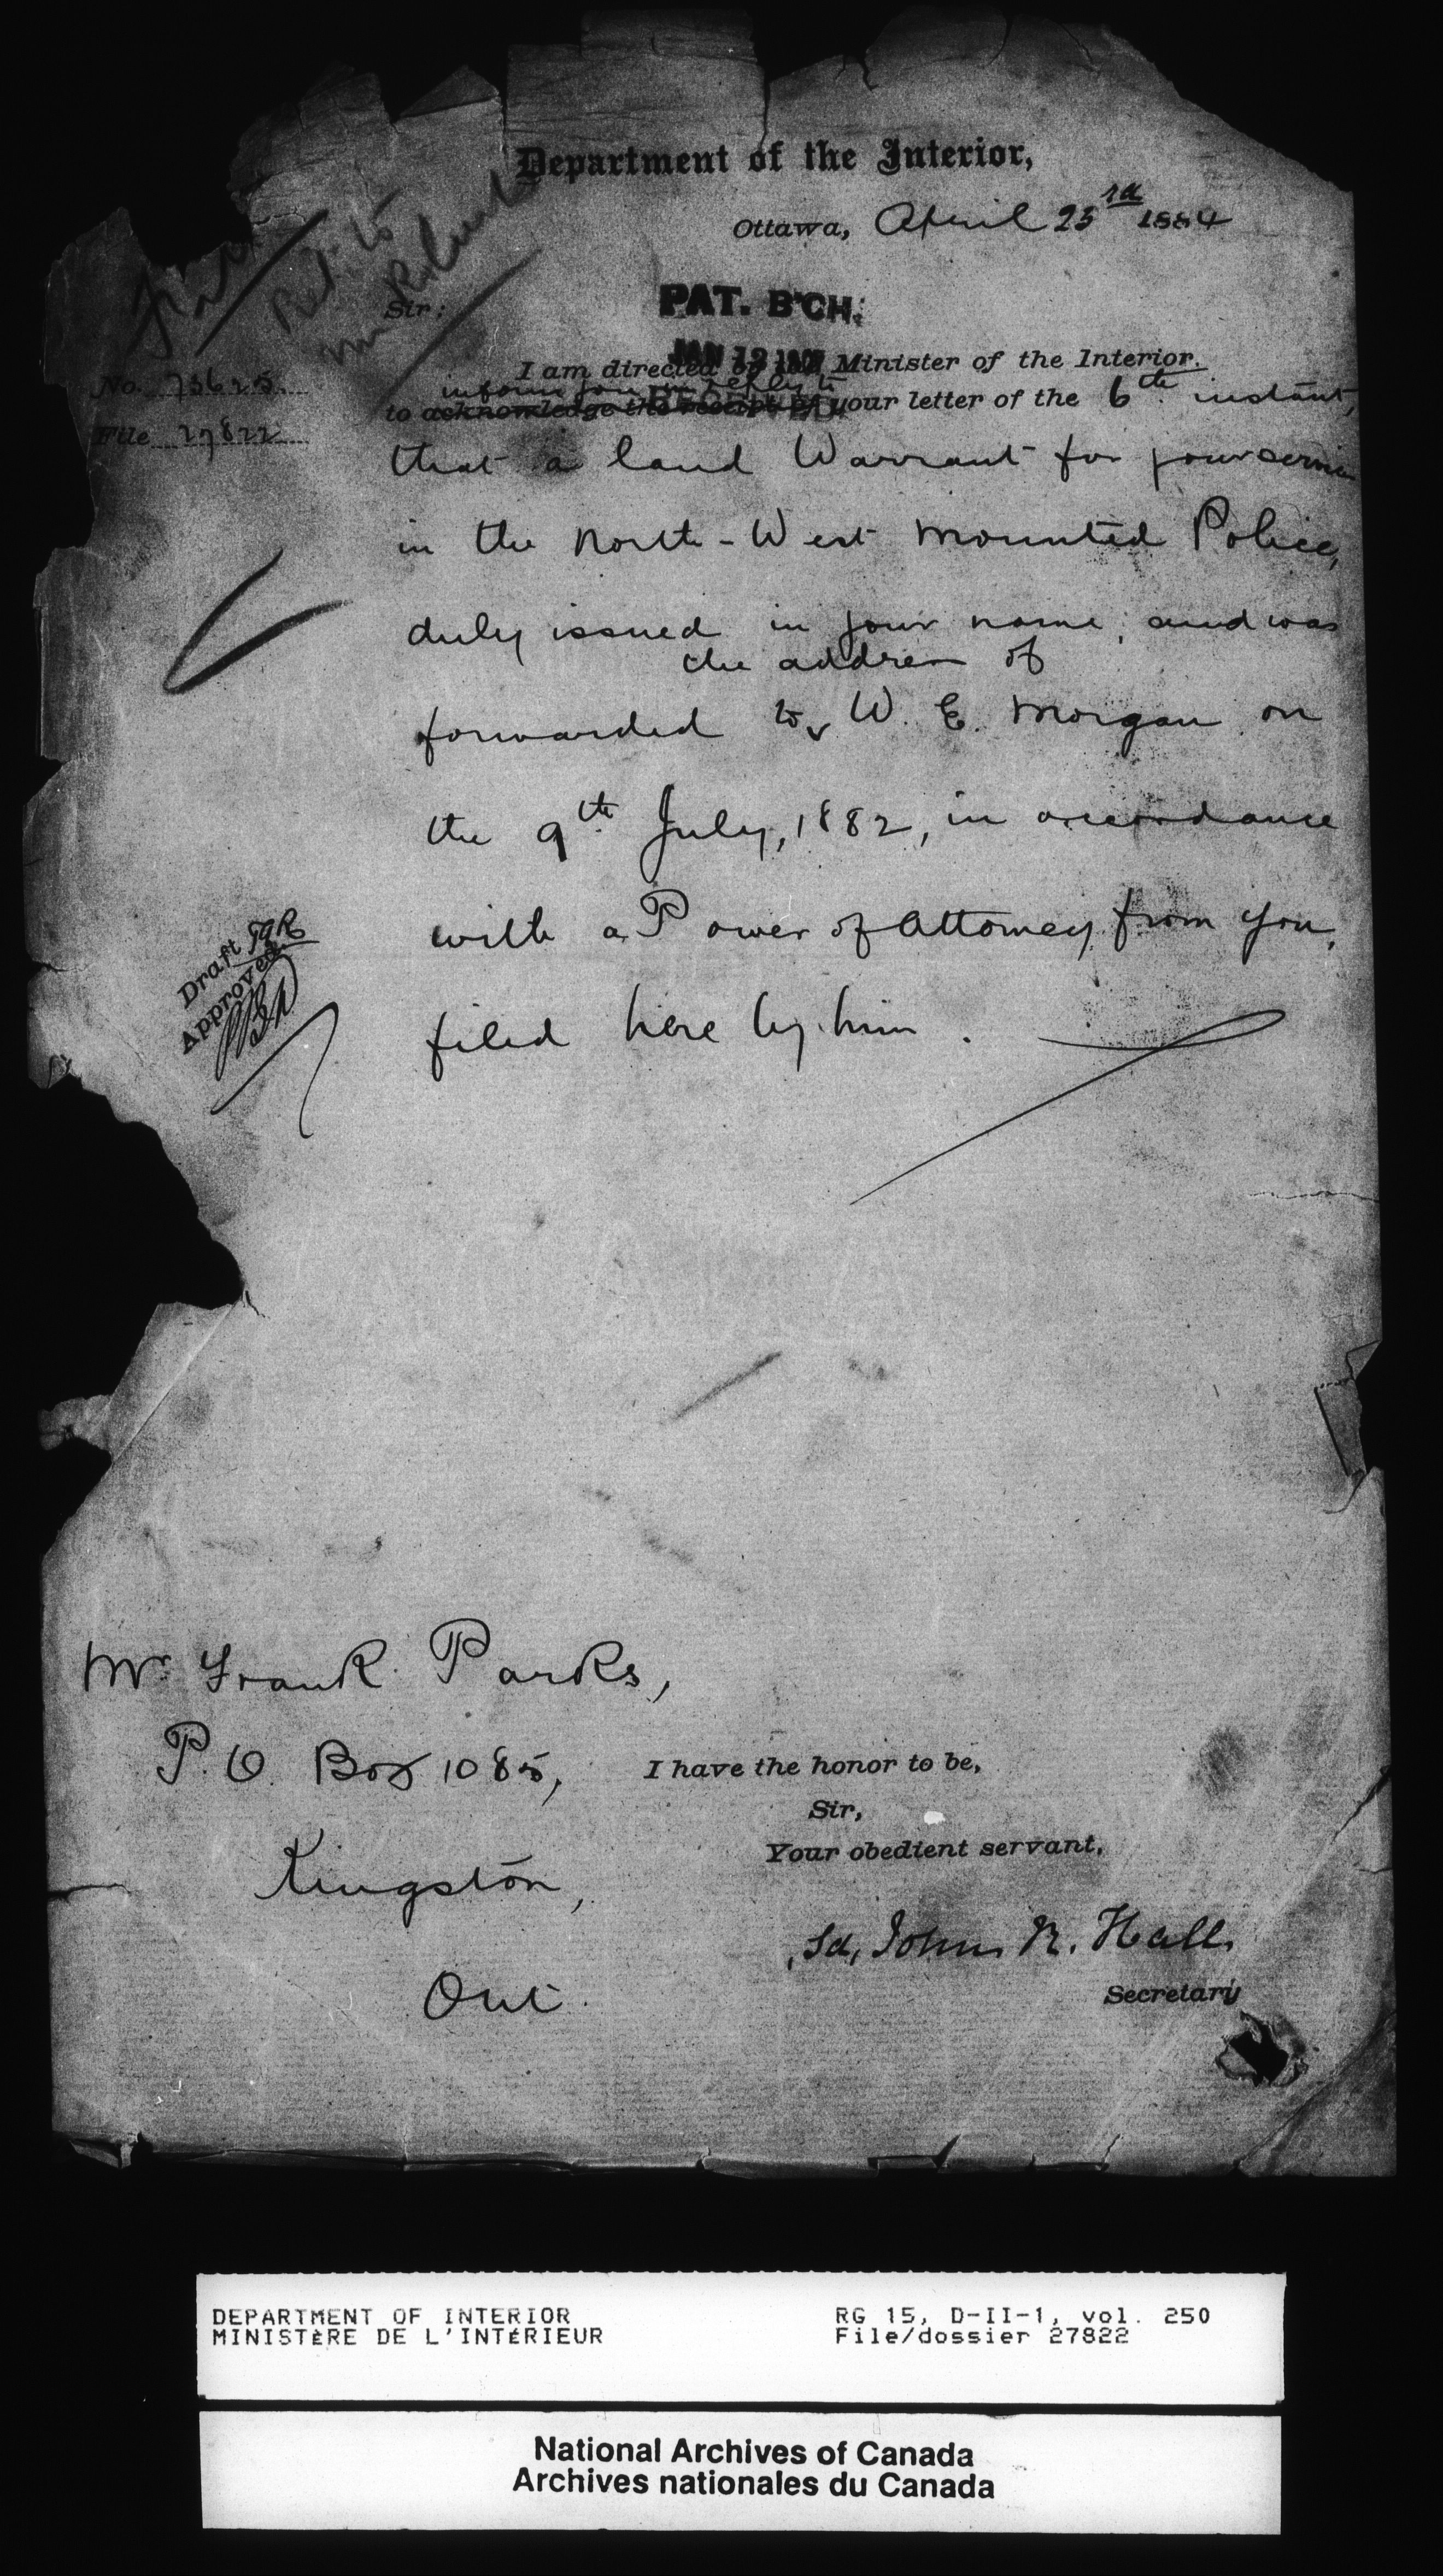 Department of the Interior,
Ottawa, April 23rd 1884
Ref. to
Mr
Sir:
PAT. B'CH.
JAN 12
RECEIVED
No. 73625
File 27822
I am directed by the Minister of the Interior.
inform you in reply to
to acknowledge the receipt of your letter of the 6th instant,
that a land Warrant for your service
in the North-West Mounted Police,
duly issued in your name, and was
the address of
forwarded to W. E. Morgan on
the 9th July, 1882, in accordance
with a Power of Attorney from you,
filed here by him.
Draft
Approved
Mr Frank Parks,
P.O. Box 1085,
Kingston,
Ont.
I have the honor to be,
Sir,
Your obedient servant,
Sd, John R. Hall,
Secretary
DEPARTMENT OF INTERIOR
MINISTÈRE DE L'INTÉRIEUR
RG 15, D-II-1, vol. 250
File/dossier 27822
National Archives of Canada
Archives nationales du Canada